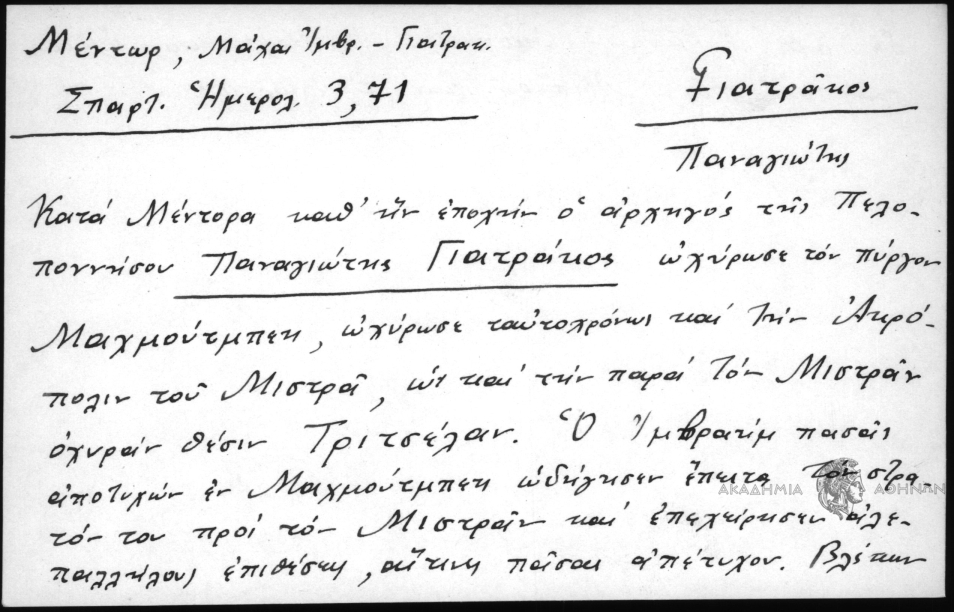 Μέντωρ, Μάχαι Ἰμβρ. - Γιατρακ.
Σπαρτ. Ἡμερολ. 3, 71
Γιατρᾶκος
Παναγιώτης
Κατά Μέντορα καθ' ἥν ἐποχήν ὁ ἀρχηγός τῆς Πελο-
ποννήσου Παναγιώτης Γιατράκος ὠχύρωσε τόν πύργον
Μαχμούτμπεη, ὠχύρωσε ταὐτοχρόνως καί τήν Ἀκρό-
πολιν τοῦ Μιστρᾶ, ὡς καί τήν παρά τόν Μιστρᾶν
ὀχυράν θέσιν Τριτσέλαν. Ὁ Ἰμβραήμ πασᾶς
ἀποτυχών ἐν Μαχμούτμπεη ὡδήγησεν ἔπειτα τόν στρα-
τόν του πρός τόν Μιστρᾶν καί ἐπεχείρησεν ἀλε-
παλλήλους ἐπιθέσεις, αἵτινες πᾶσαι ἀπέτυχον. Βλέπων
ΑΚΑΔΗΜΙΑ ΑΘΗΝΩΝ